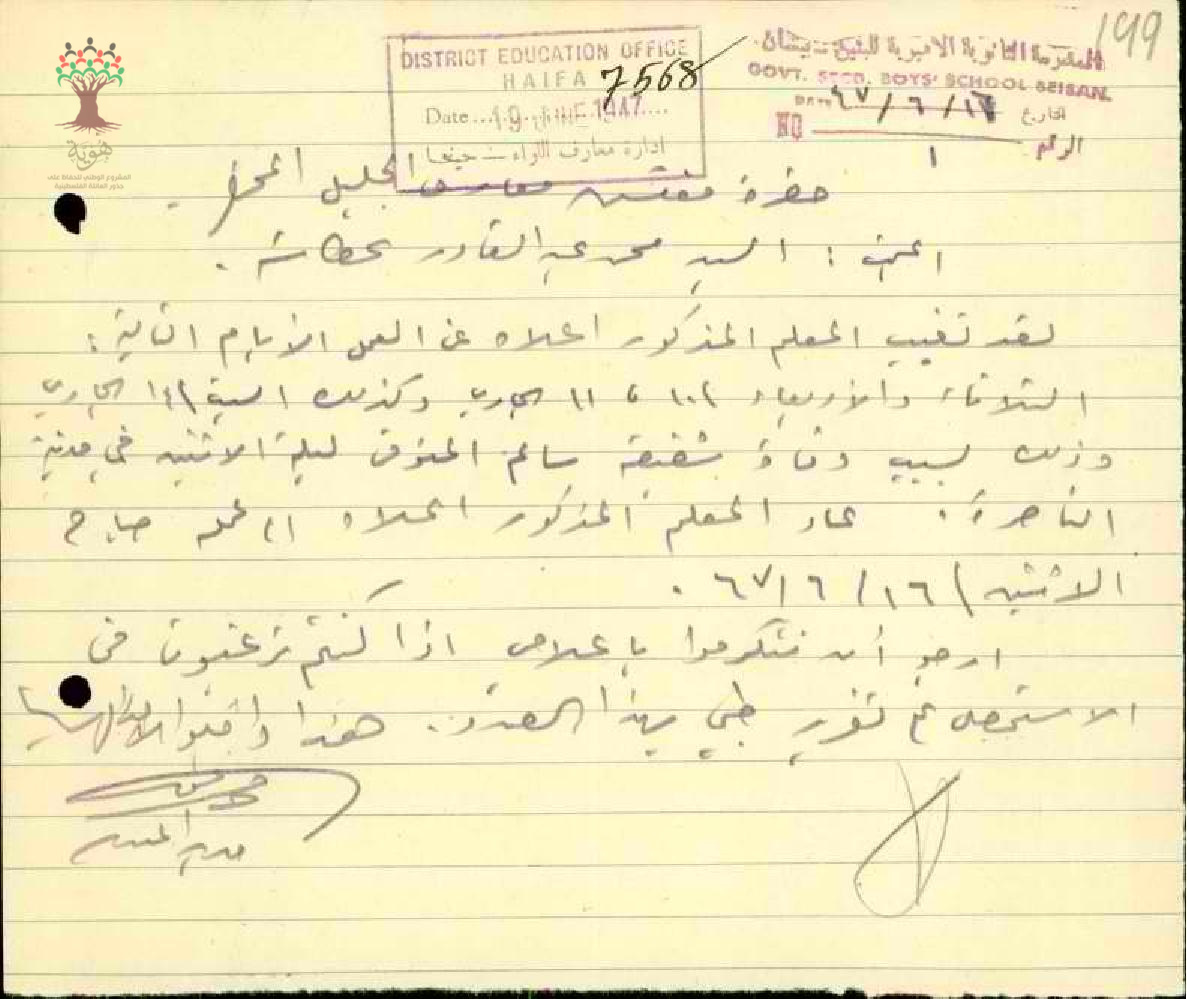 199
DISTRICT EDUCATION OFFICE
HAIFA
7568
Date...19 JUNE 1947....
ادارة معارف اللواء — حيفا
المدرسة الثانوية الاميرية للبنين - بيسان
GOVT. SECD. BOYS' SCHOOL BEISAN.
التاريخ ١٦/٦/٤٧ DATE
الرقم NO
هوية
المشروع الوطني للحفاظ على
جذور العائلة الفلسطينية
حضرة مفتش معارف الجليل المحترم
: السيد محمد عبد القادر
لقد تغيب المعلم المذكور اعلاه عن العمل الأيام التالية:
الثلاثاء والأربعاء ١٠ ، ١١ الجاري وكذلك السبت ١٤ الجاري
وذلك بسبب وفاة شقيقه سالم المتوفى ليلة الاثنين في مدينة
الناصرة. عاد المعلم المذكور اعلاه الى عمله صباح
الاثنين ١٦/٦/٤٧.
ارجو أن تتكرموا بإعلامي اذا كنتم ترغبون في
الاستحصال على تقرير طبي بهذا الصدد. هذا واقبلوا
مدير المدرسة